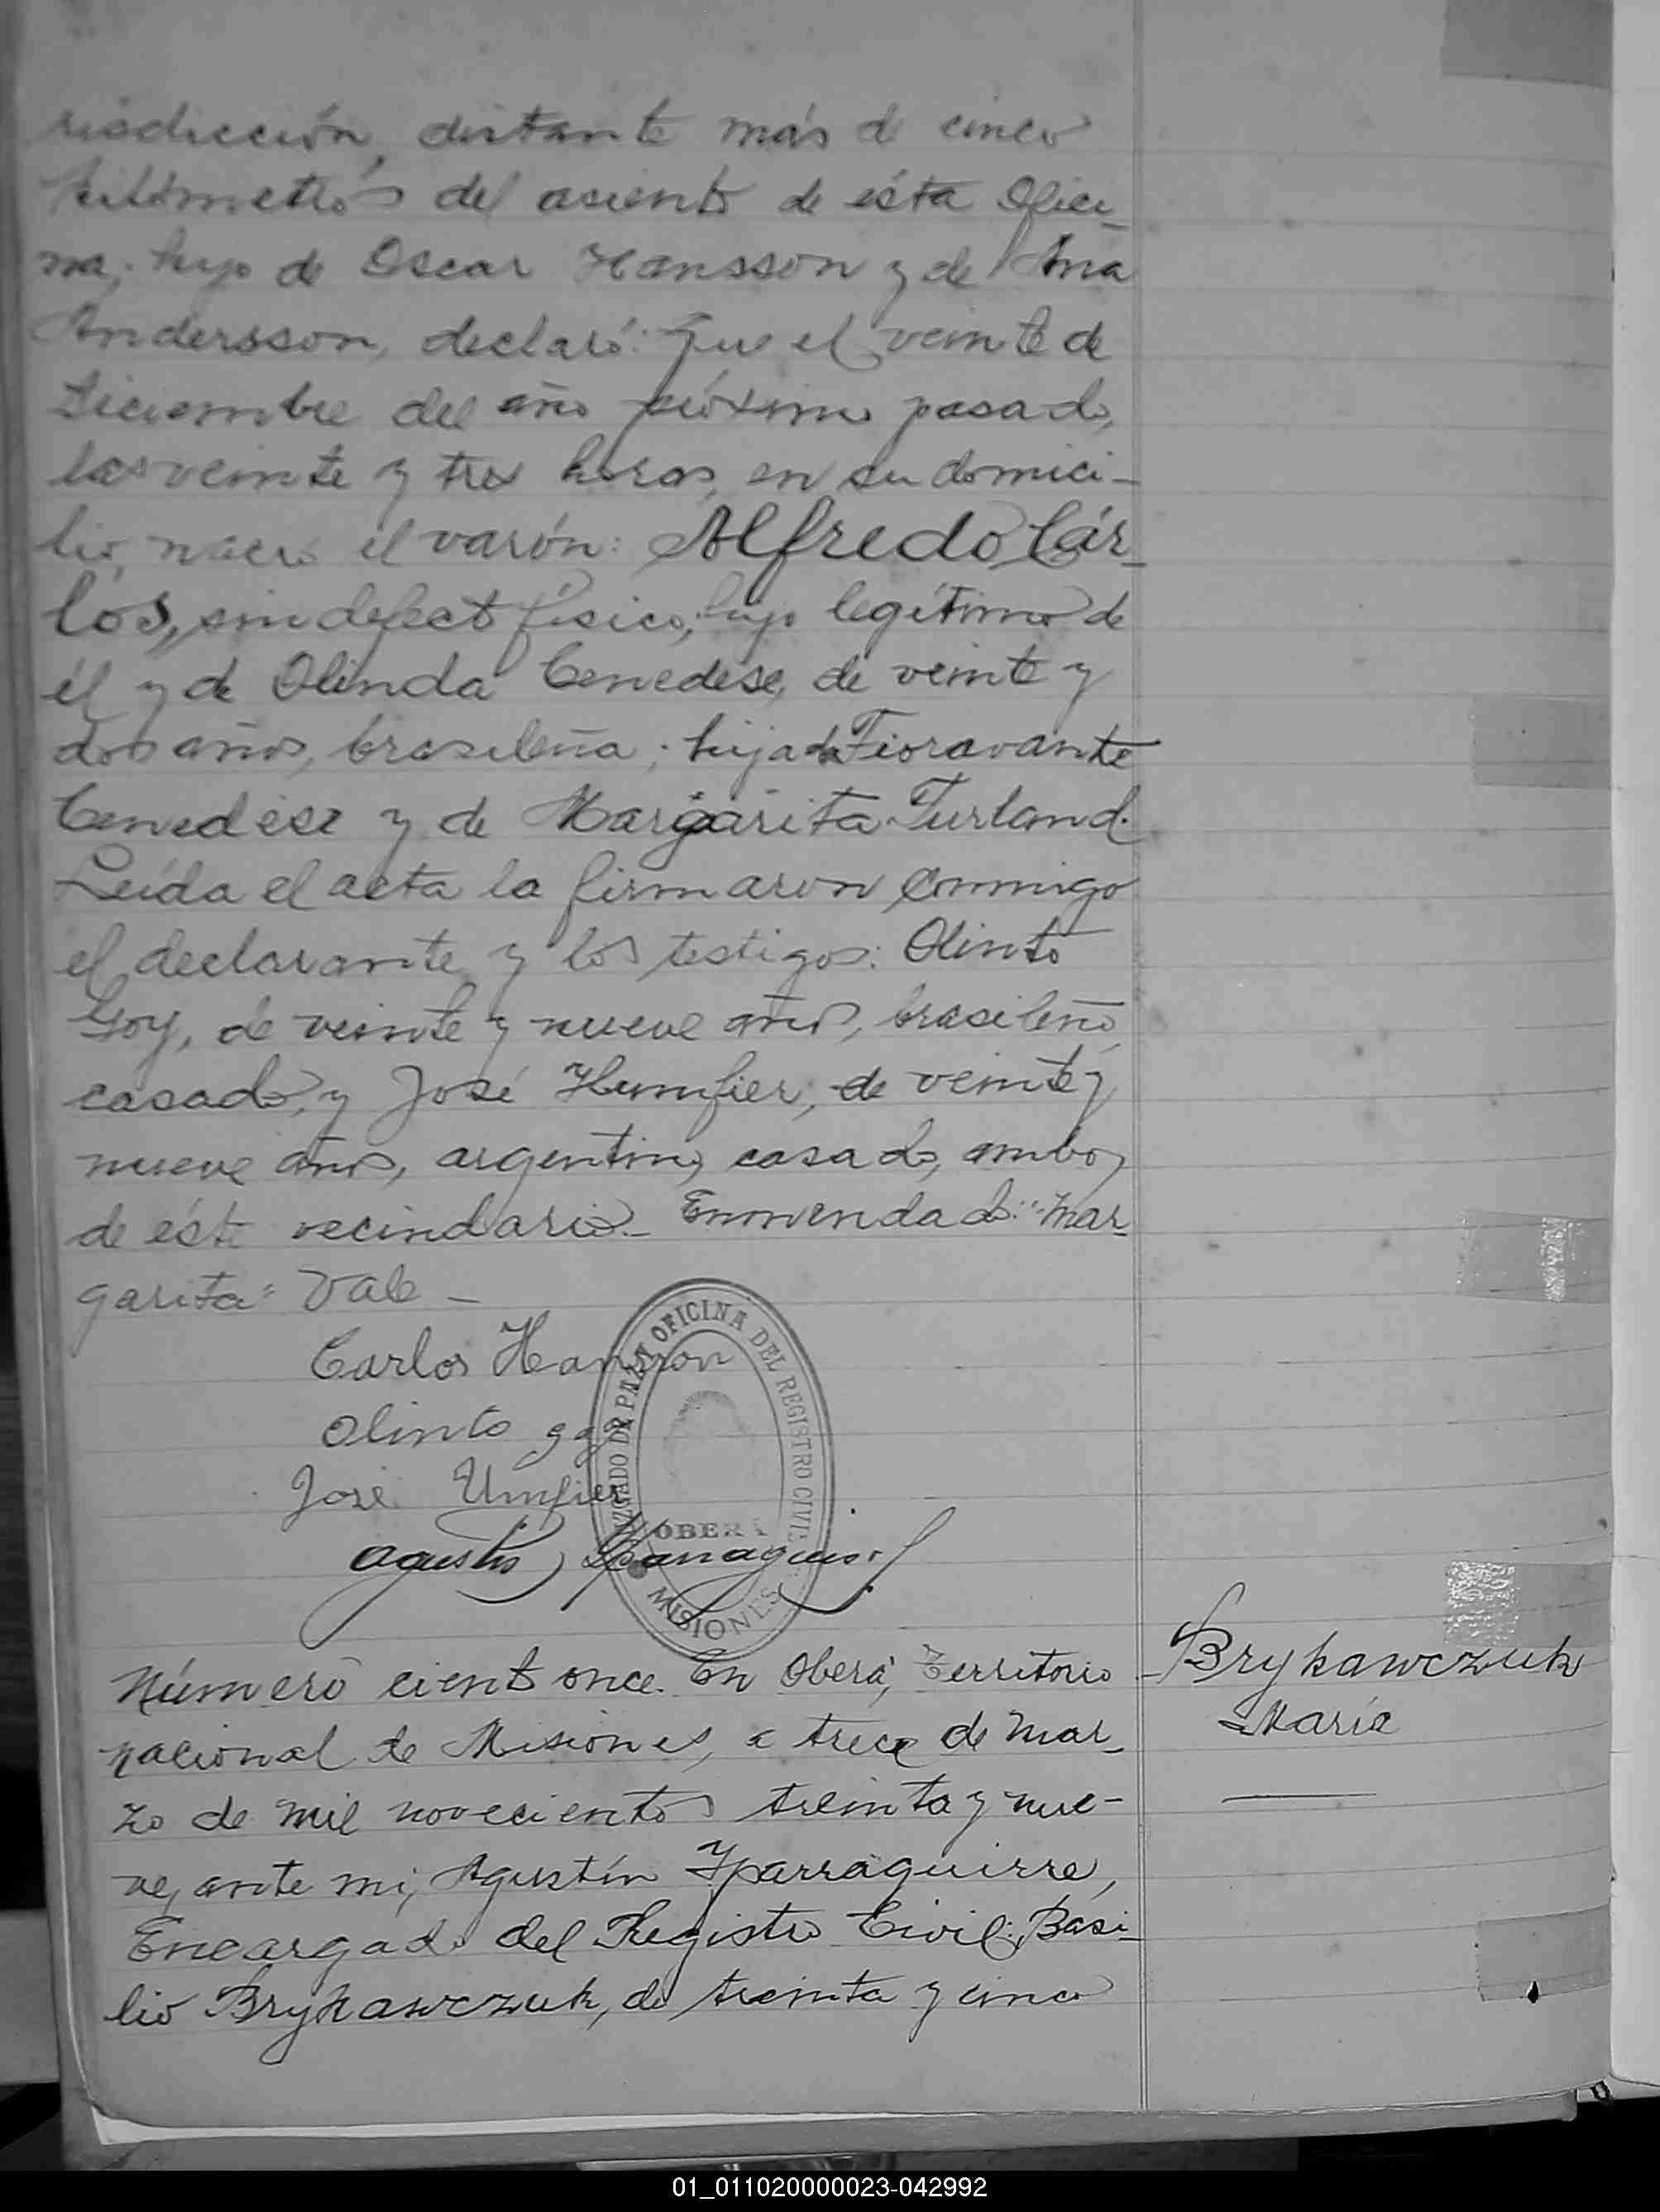 risdicción, distante más de cinco
kilómetros del asiento de ésta Ofici-
na; hijo de Oscar Hansson y de Ana
Andersson, declaró: Que el veinte de
Diciembre del año próximo pasado,
las veinte y tres horas, en su domici-
lio, nació el varón: Alfredo Cár-
los, sin defecto físico; hijo legítimo de
él y de Olinda Cenedese, de veinte y
dos años, brasileña; hija de Fioravante
Cenedese y de Margarita Turland.
Leída el acta la firmaron conmigo
el declarante y los testigos: Olinto
Goy, de veinte y nueve años, brasileño,
casado, y José Humfier, de veinte y
nueve años, argentino, casado, ambos
de éste vecindario.- Enmendado: "Mar-
garita" Vale -
Carlos Hansson
Olinto
José Umfier
Agustín Yparraguirre
JUZGADO DE PAZ Y OFICINA DEL REGISTRO CIVIL
OBERÁ
MISIONES
Número ciento once. En Oberá, Territorio
nacional de Misiones, a trece de Mar-
zo de mil novecientos treinta y nue-
ve, ante mí, Agustín Yparraguirre,
Encargado del Registro Civil: Basi-
lio Brykawczuk, de treinta y cinco
Brykawczuk
María
01_011020000023-042992